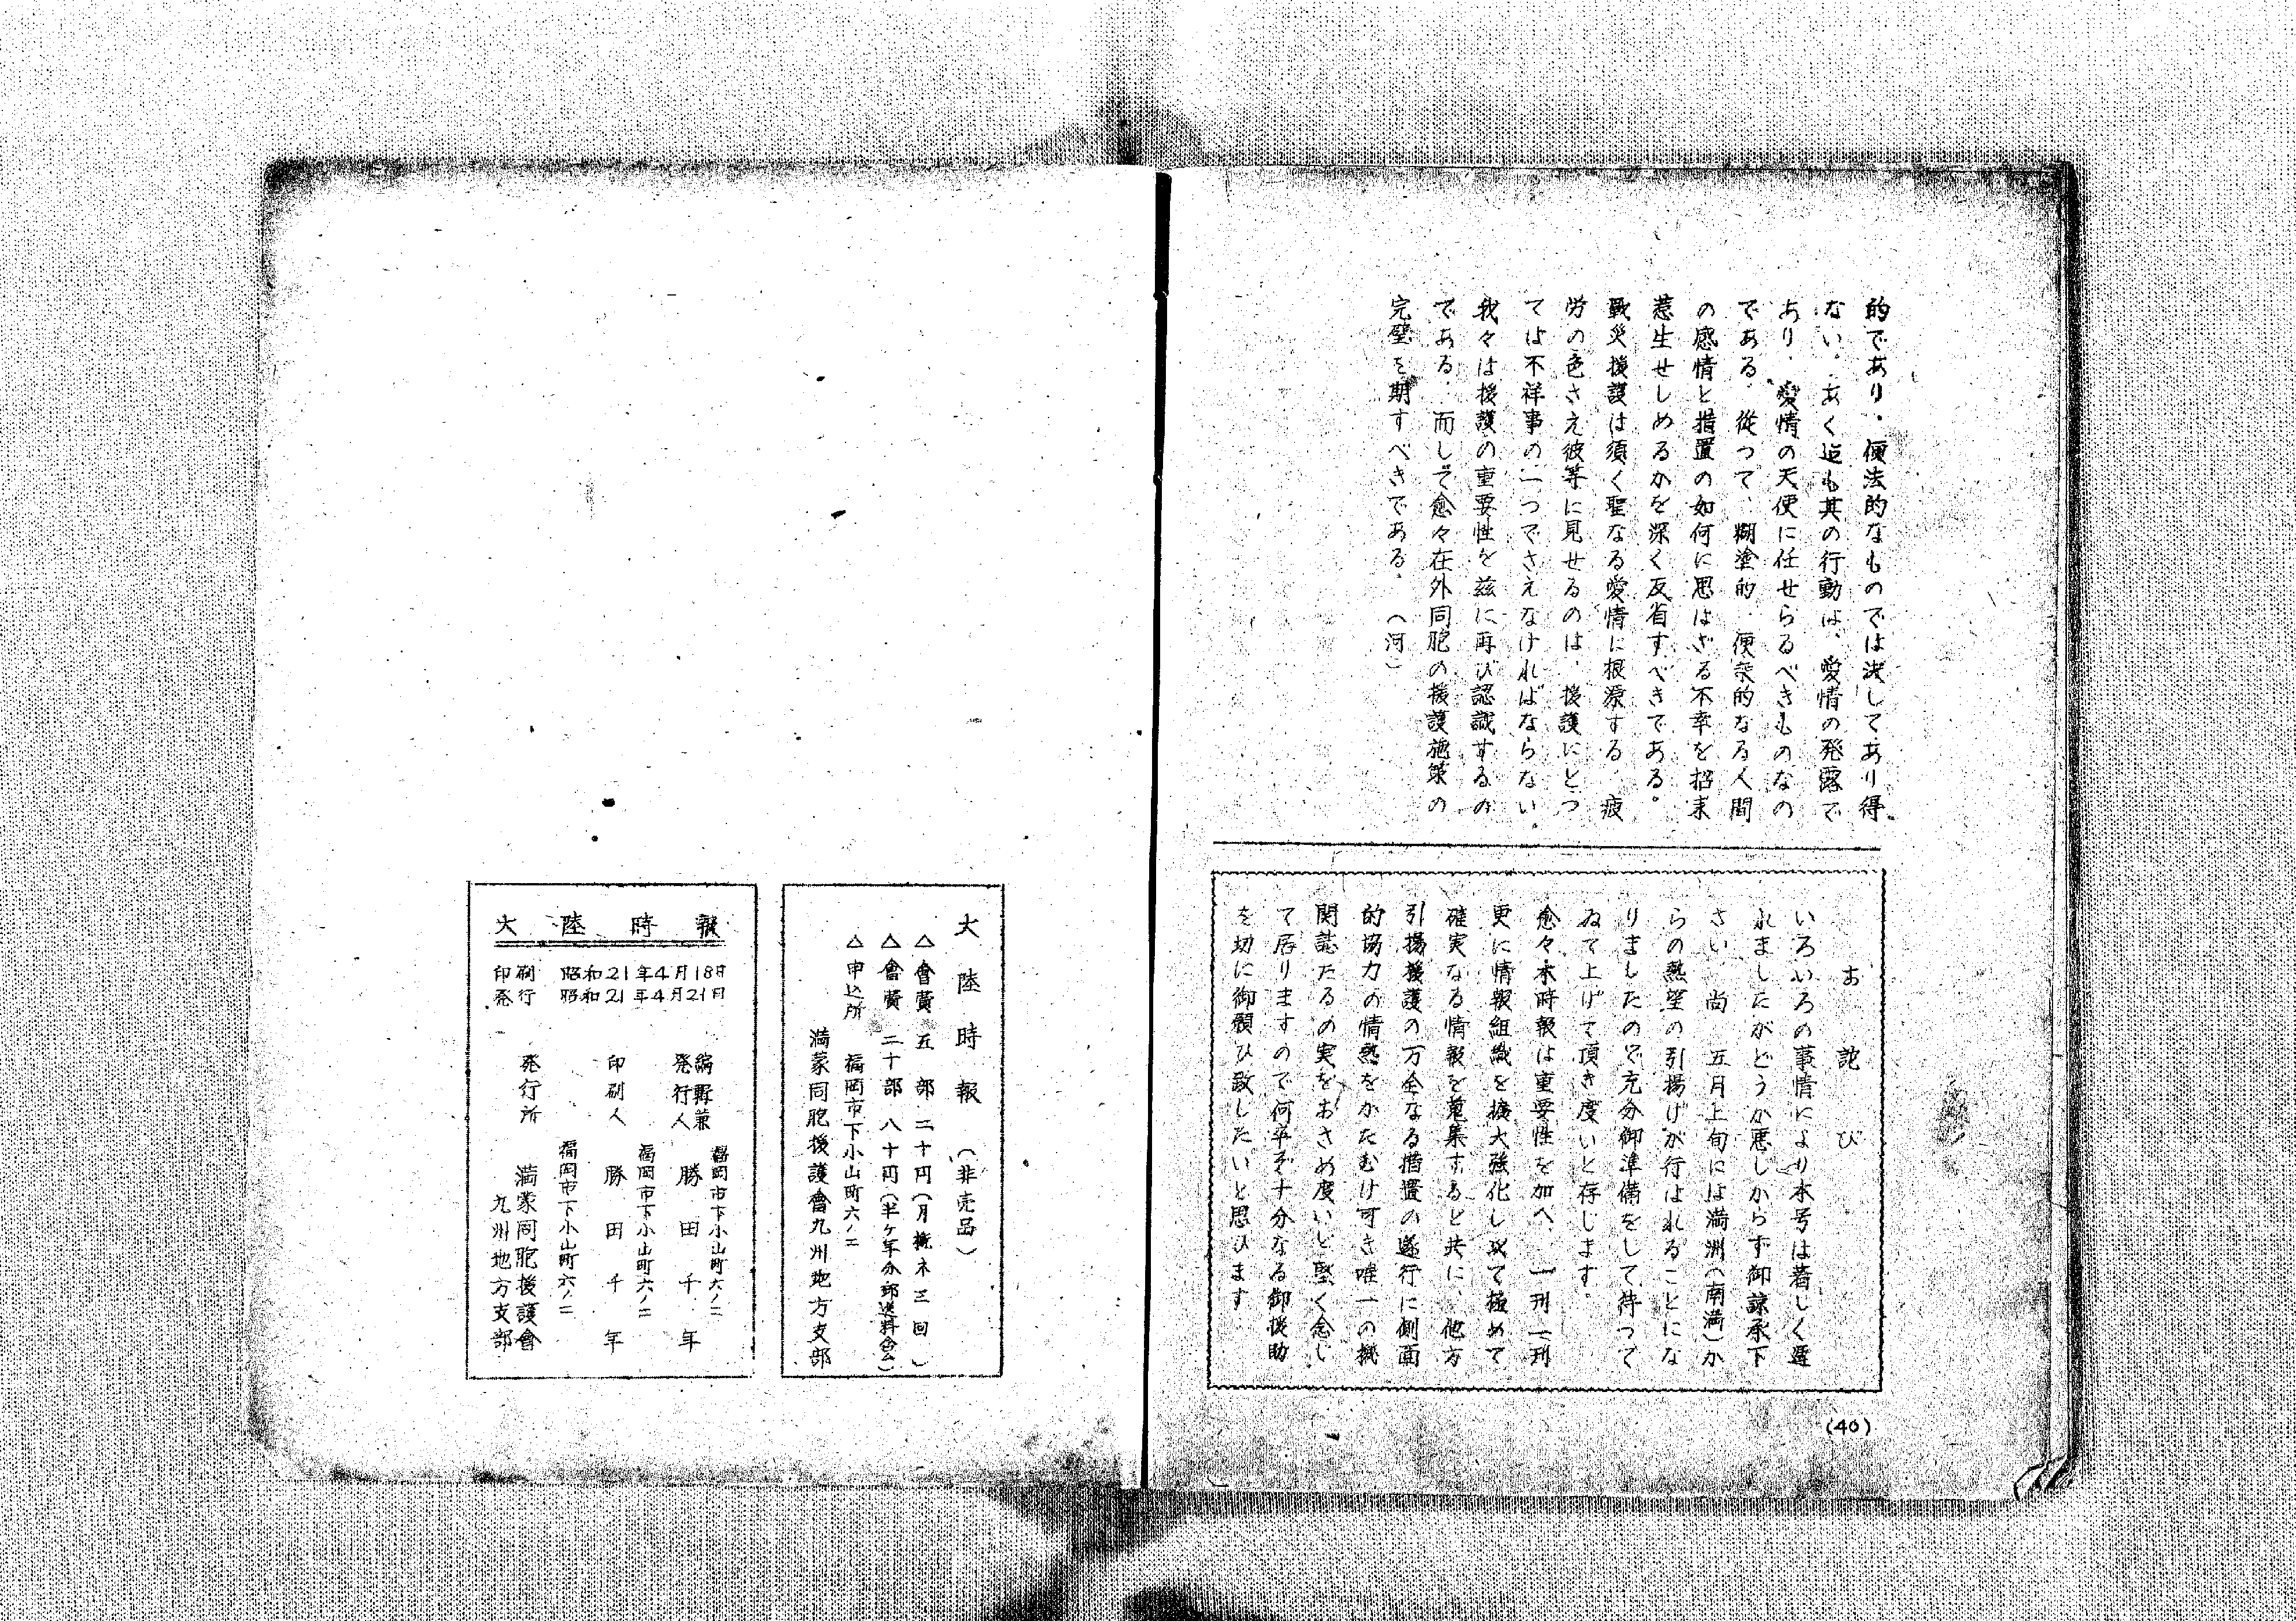 的であり、便法的なものでは決してあり得
ない。あく迄も其の行動は、愛情の発露で
あり、愛情の天使に任せらるべきものなの
である。従つて、糊塗的、便宜的なる人間
の感情と措置の如何に思はざる不幸を招来
惹生せしめるかを深く反省すべきである。
戰災援護は須く聖なる愛情に根源する。疲
労の色さえ彼等に見せるのは、援護にとつ
ては不祥事の一つでさえなければならない。
我々は援護の重要性を茲に再び認識するの
である。而して愈々在外同胞の援護施策の
完璧を期すべきである。(河)
お詫び
いろいろの事情により本号は若しく遅
れましたがどうか悪しからず御諒承下
さい 尚 五月上旬には満洲(南満)か
らの熱望の引揚げが行はれることにな
りましたので充分御準備をして待つて
ゐて上げて頂き度いと存じます。
愈々本時報は重要性を加へ、一刊一刊
更に情報組織を擴大強化し以て極めて
確実なる情報を蒐集すると共に、他方
引揚援護の万全なる措置の遂行に側面
的協力の情熱をかたむけ可き唯一の機
関誌たるの実をおさめ度いと堅く念じ
て居りますので何卒ぞ十分なる御援助
を切に御願ひ致したいと思ひます
(40)
大陸時報 (非売品)
△會費 五部 二十円(月概ネ三回)
△會費 二十部 八十円(半ヶ年分郵送料含ム)
△申込所 福岡市下小山町六ノ二
満蒙同胞援護會九州地方支部
大陸時報
印刷 昭和21年4月18日
発行 昭和21年4月21日
編輯兼
発行人
福岡市下小山町六ノ二
勝田千年
福岡市下小山町六ノ二
印刷人 勝田千年
福岡市下小山町六ノ二
発行所 満蒙同胞援護會
九州地方支部